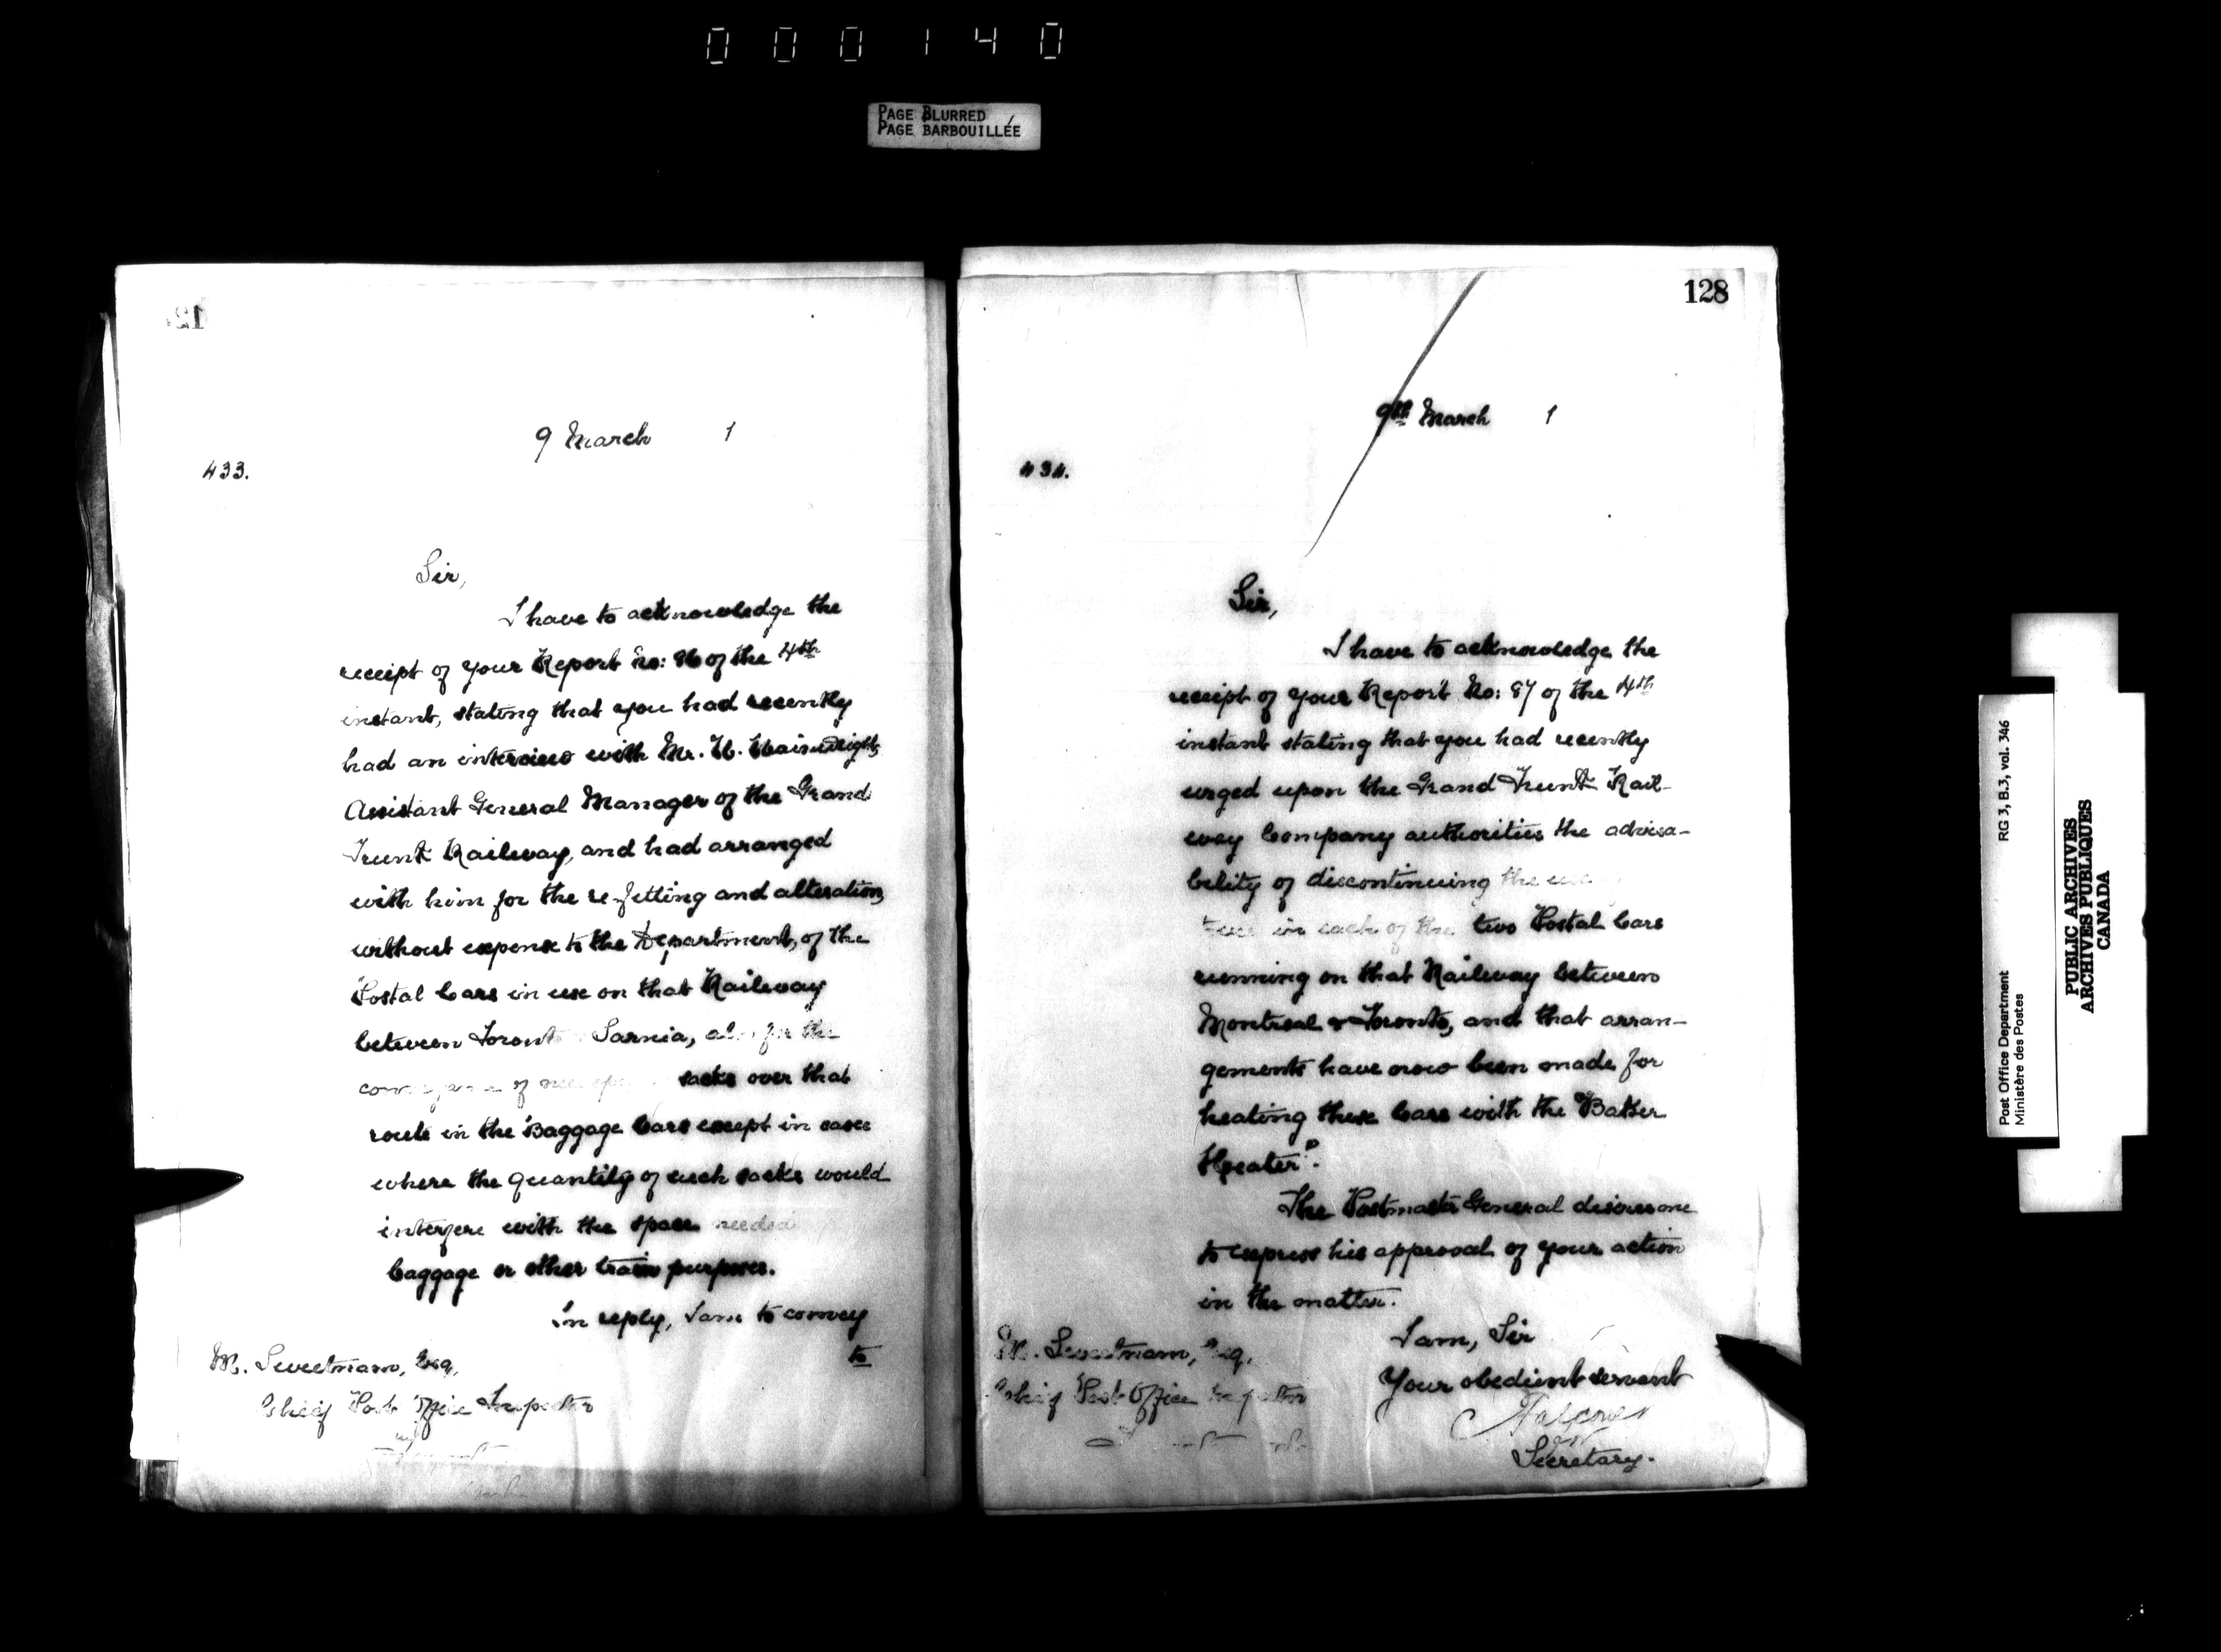 000140
PAGE BLURRED
PAGE BARBOUILLÉE
9 March 1
433.
Sir,
I have to acknowledge the
receipt of your Report No: 86 of the 4th
instant, stating that you had recently
had an interview with Mr. W. Wainwright,
Assistant General Manager of the Grand
Trunk Railway, and had arranged
with him for the re-fitting and alteration,
without expense to the Department, of the
Postal Cars in use on that Railway
between Toronto Sarnia, also for the
of sacks over that
route in the Baggage Cars except in cases
where the quantity of such sacks would
interfere with the space needed
baggage or other train purposes.
In reply, I am to convey
to
M. Sweetnam, Esq,
Chief Post Office Inspector
128
9th March 1
434.
Sir,
I have to acknowledge the
receipt of your Report No: 87 of the 4th
instant stating that you had recently
urged upon the Grand Trunk Rail-
way Company authorities the advisa-
bility of discontinuing the
in each of the two Postal Cars
running on that Railway between
Montreal & Toronto, and that arran-
gements have now been made for
heating these Cars with the "Baker
Heater".
The Postmaster General desires me
to express his approval of your action
in the matter.
I am, Sir
Your obedient servant
Secretary.
M. Sweetnam, Esq,
Chief Post Office Inspector
Post Office Department RG 3, B.3, vol. 346
Ministère des Postes
PUBLIC ARCHIVES
ARCHIVES PUBLIQUES
CANADA